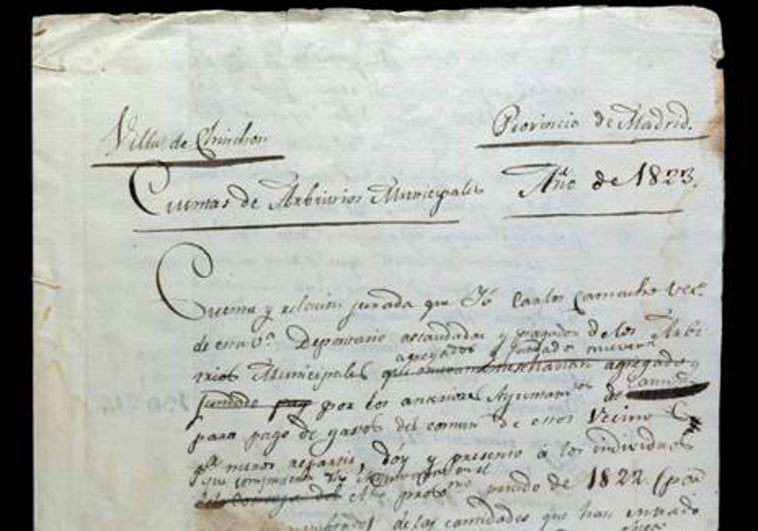 Villa de Chinchon
Provincia de Madrid.
Cuentas de Arbitrios Municipales
Año de 1823.
Cuenta y relacion jurada que Yo Carlos Camacho Vez.º
de esta V.ª Depositario recaudador y pagador de los Arbi
agregados y fundados nuevam.te
trios Municipales que nuevamente habian agregado y
fundado por los anteriores Ayuntam.tos de
para pago de gastos del comun de estos Vecino
p.a menos repartir, doy y presento à los individuos
que componian
el Año proximo pasado de 1822. (por
de las cantidades que han entrado